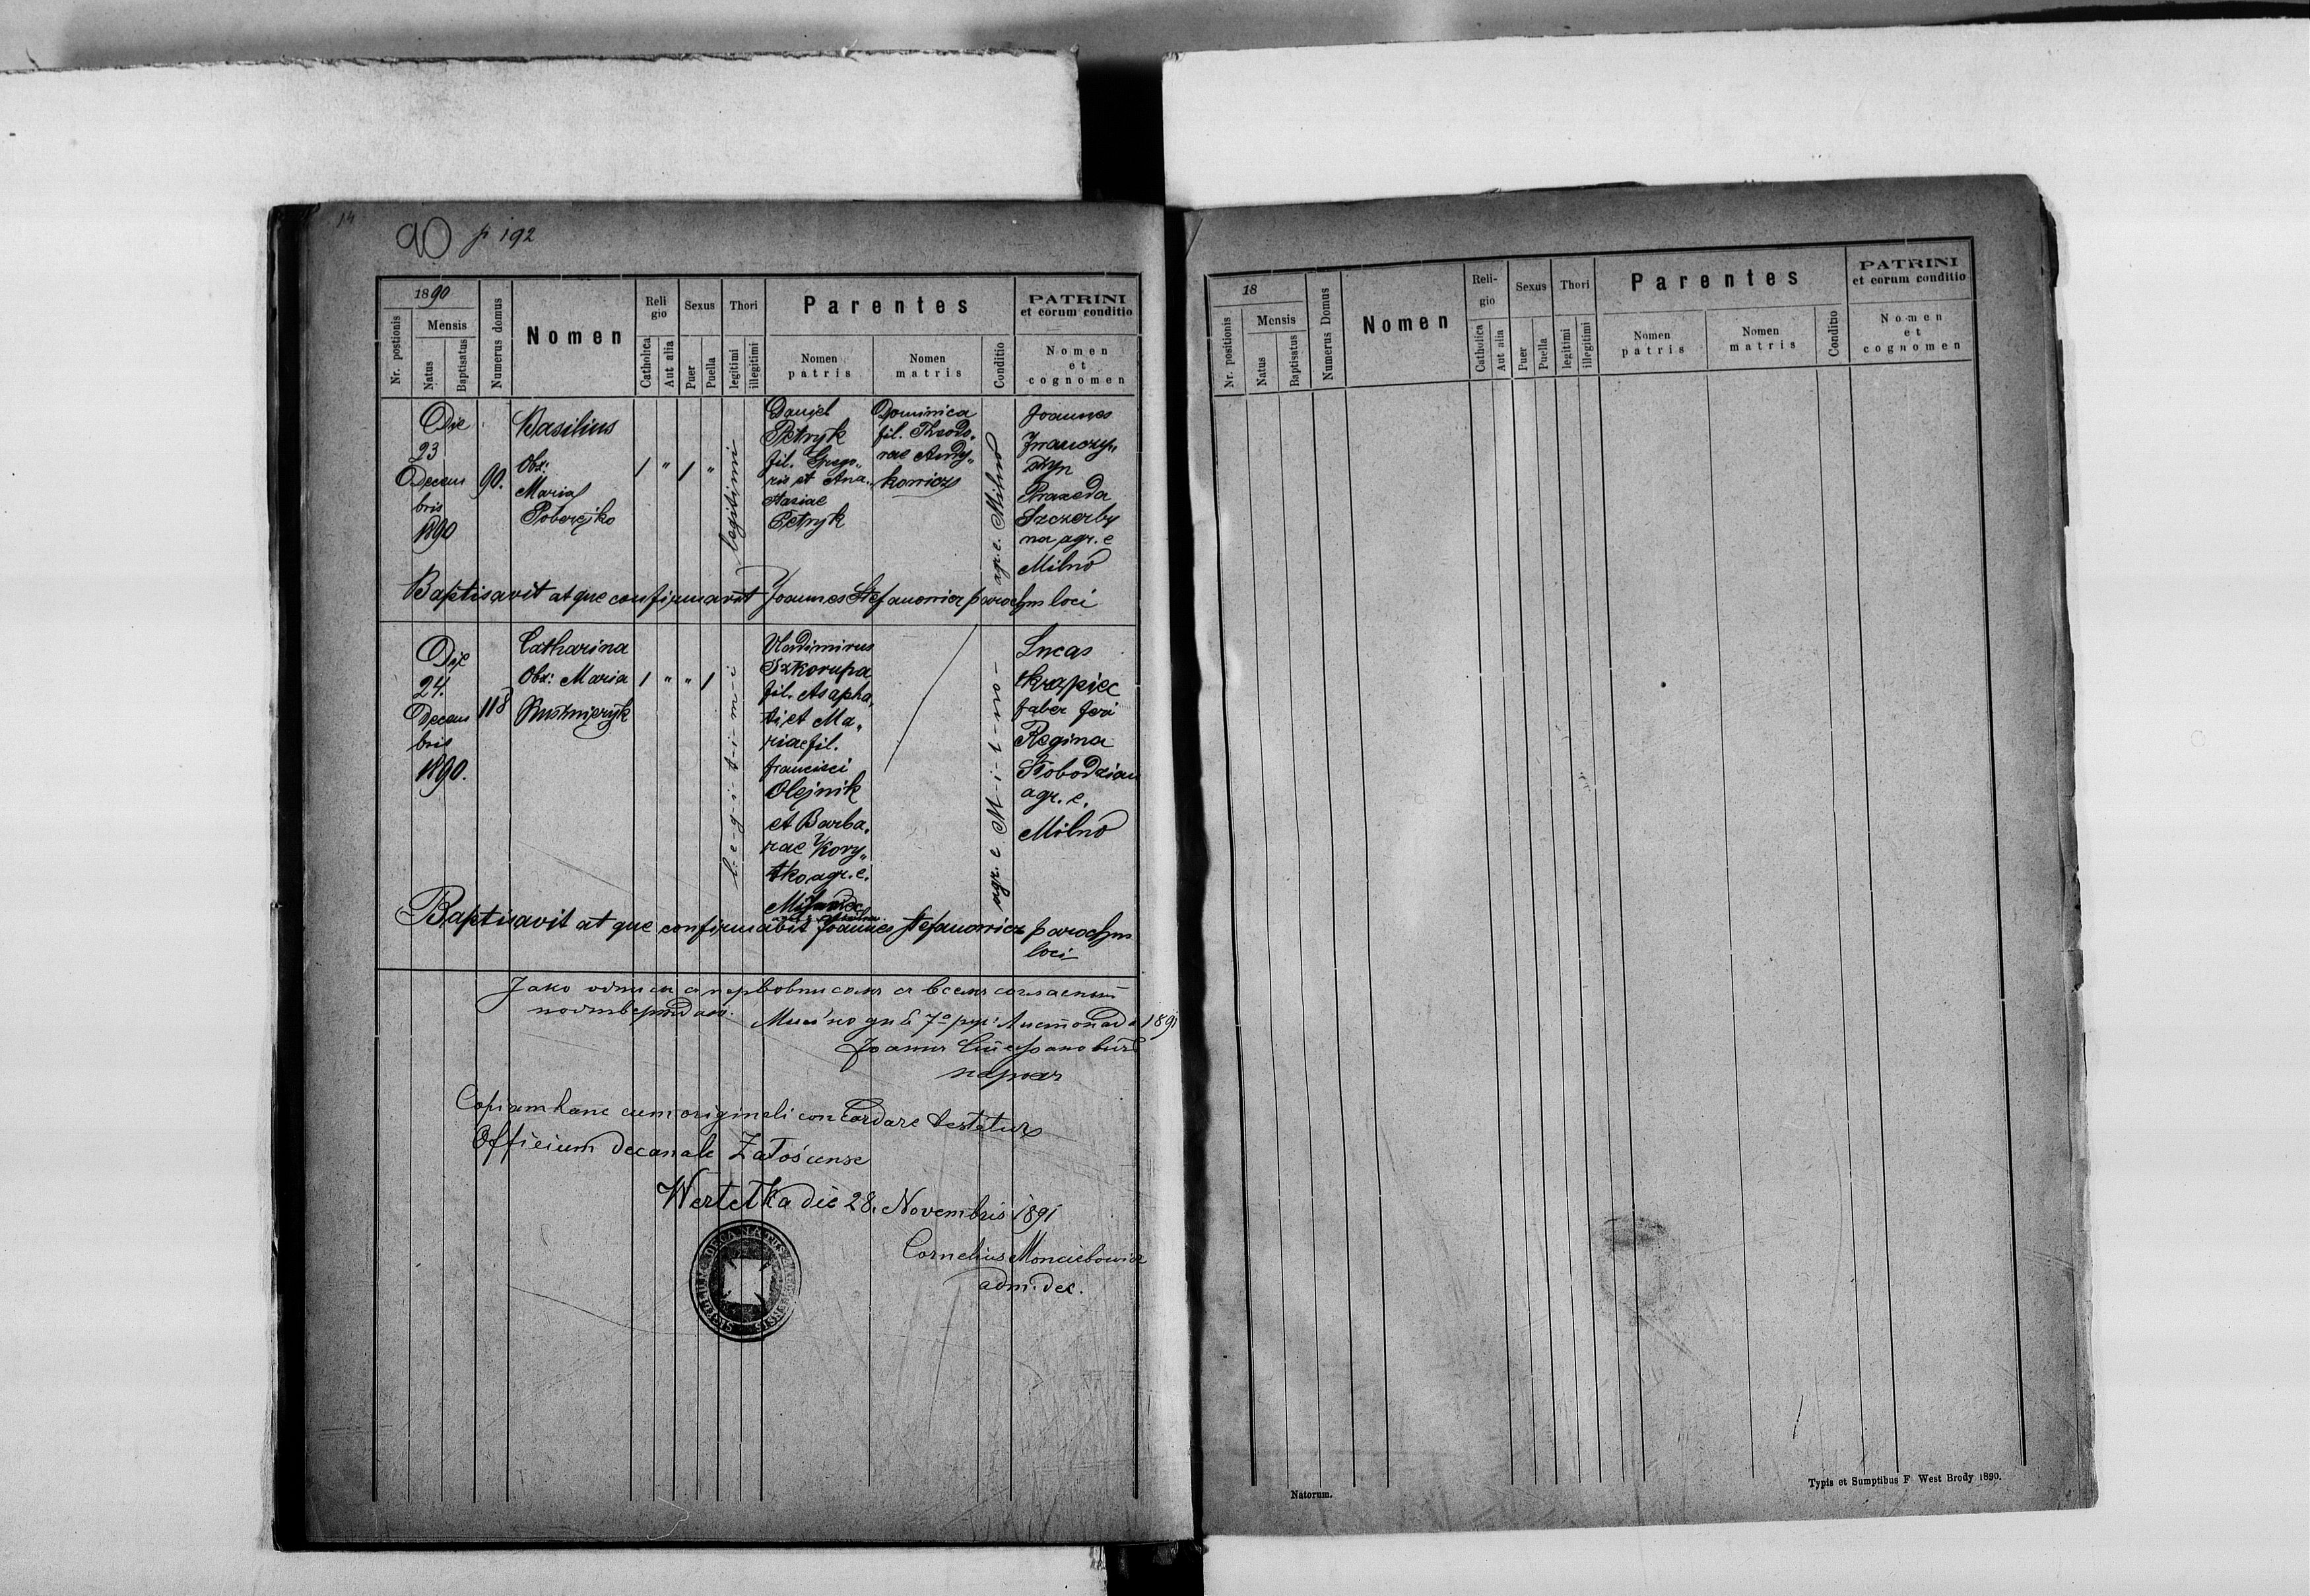 14
90 p 192
1890
Nr. postionis
Mensis
Natus
Baptisatus
Numerus domus
Nomen
Reli
gio
Catholica
Aut alia
Sexus
Puer
Puella
Thori
legitimi
illegitimi
Parentes
Nomen
patris
Nomen
matris
Conditio
PATRINI
et eorum conditio
Nomen
et
cognomen
Die
23
Decem
bris
1890
90.
Basilius
Obx:
Maria
Poberejko
1 " 1 "
legitimi
Daniel
Petryk
fil. Grego„
rii et Ana„
stasiae
Petryk
Dominica
fil. Theodo„
rae Andy„
kowicz
agr. e. Milno
Joannes
Franczy„
szyn
Praxeda
Szczerby
na agr. e
Milno
Baptisavit atque confirmavit Joannes Stefanowicz parochus loci
Die
24.
Decem
bris
1890.
118
Catharina
Obx: Maria
Kuśnieryk
1 " " 1
l-e-g-i-t-i-m-i
Vladimirus
Szkorupa
fil. Asapha„
ti et Ma„
riae fil.
Francisci
Olejnik
et Barba„
rae Kory„
tko agr. e.
agr. e M-i-l-no-
Lucas
Krzpiec
faber feri
Regina
Słobodzian
agr. e.
Milno
Baptisavit atque confirmabit Joannes Stefanowicz parochus
loci
Jako
подтверждаю.
7º 1891
Copiam hanc cum originali concordare testatur
Officium decanale Załośćense
Wertełka die 28. Novembris 1891
Cornelius Moncibowicz
adm. dec.
18
Nr. positionis
Mensis
Natus
Baptisatus
Numerus Domus
Nomen
Reli-
gio
Catholica
Aut alia
Sexus
Puer
Puella
Thori
legitimi
illegitimi
Parentes
Nomen
patris
Nomen
matris
Conditio
PATRINI
et eorum conditio
Nomen
et
cognomen
Natorum.
Typis et Sumptibus F West Brody 1890.